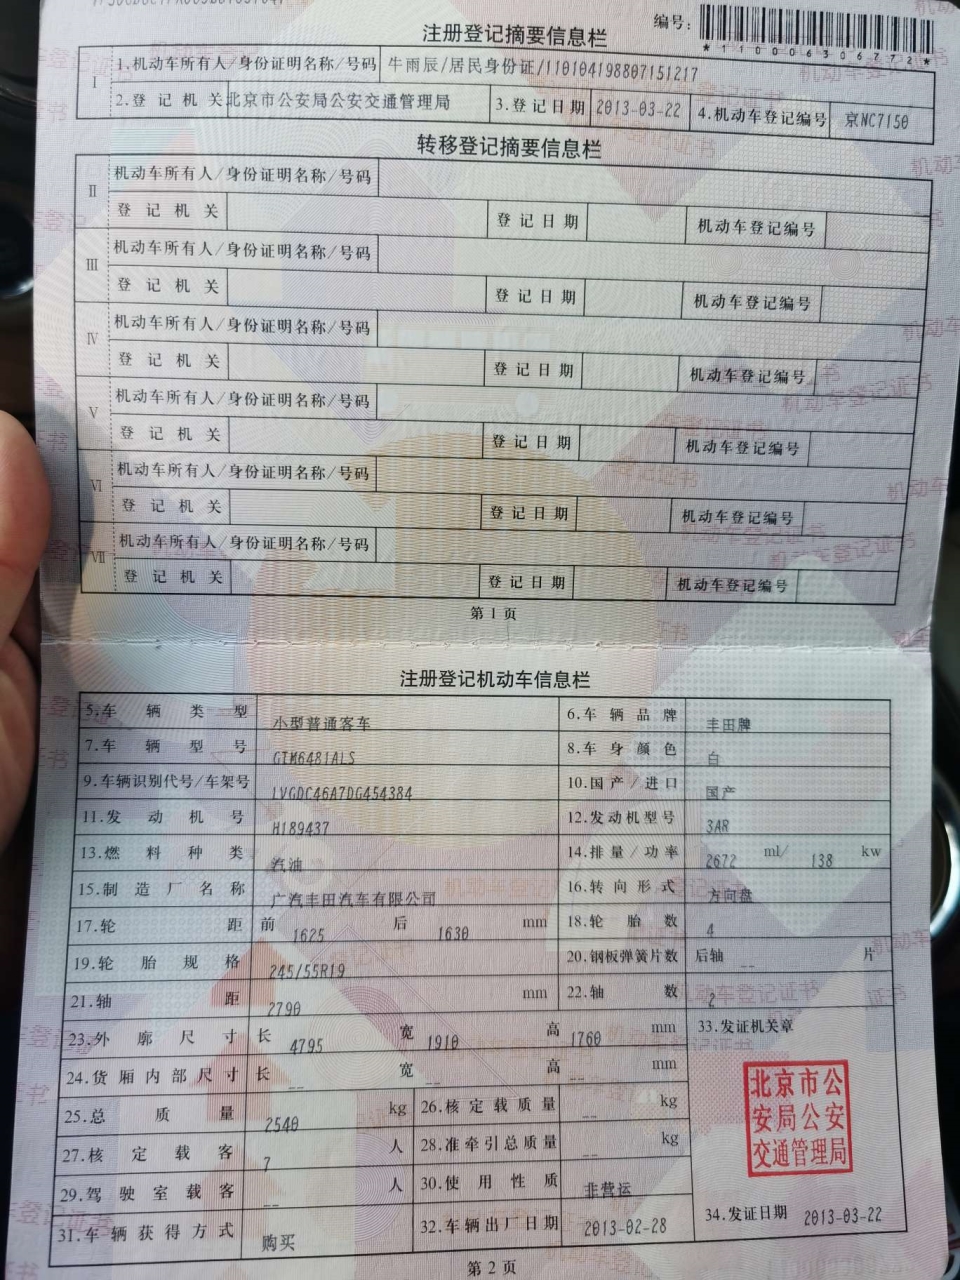 注册登记摘要信息栏
编号:
*110006306772*
I
1.机动车所有人/身份证明名称/号码 牛雨辰/居民身份证/110104198807151217
2.登记机关 北京市公安局公安交通管理局 3.登记日期 2013-03-22 4.机动车登记编号 京NC7150
转移登记摘要信息栏
II 机动车所有人/身份证明名称/号码
登记机关 登记日期 机动车登记编号
III 机动车所有人/身份证明名称/号码
登记机关 登记日期 机动车登记编号
IV 机动车所有人/身份证明名称/号码
登记机关 登记日期 机动车登记编号
V 机动车所有人/身份证明名称/号码
登记机关 登记日期 机动车登记编号
VI 机动车所有人/身份证明名称/号码
登记机关 登记日期 机动车登记编号
VII 机动车所有人/身份证明名称/号码
登记机关 登记日期 机动车登记编号
第1页
注册登记机动车信息栏
5.车辆类型 小型普通客车 6.车辆品牌 丰田牌
7.车辆型号 GTM6481ALS 8.车身颜色 白
9.车辆识别代号/车架号 LVGDC46A7DG454384 10.国产/进口 国产
11.发动机号 H189437 12.发动机型号 3AR
13.燃料种类 汽油 14.排量/功率 2672 ml/ 138 kw
15.制造厂名称 广汽丰田汽车有限公司 16.转向形式 方向盘
17.轮距 前 1625 后 1630 mm 18.轮胎数 4
19.轮胎规格 245/55R19 20.钢板弹簧片数 后轴 -- 片
21.轴距 2790 mm 22.轴数 2
23.外廓尺寸 长 4795 宽 1910 高 1760 mm 33.发证机关章
24.货厢内部尺寸 长 -- 宽 -- 高 -- mm
25.总质量 2540 kg 26.核定载质量 -- kg
27.核定载客 7 人 28.准牵引总质量 -- kg
29.驾驶室载客 -- 人 30.使用性质 非营运
31.车辆获得方式 购买 32.车辆出厂日期 2013-02-28 34.发证日期 2013-03-22
北京市公
安局公安
交通管理局
第2页